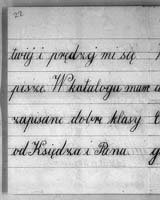 22
twój i prędzej mi się
pisze. W katalogu mam
zapisane dobre klasy
od Księdza i Pana